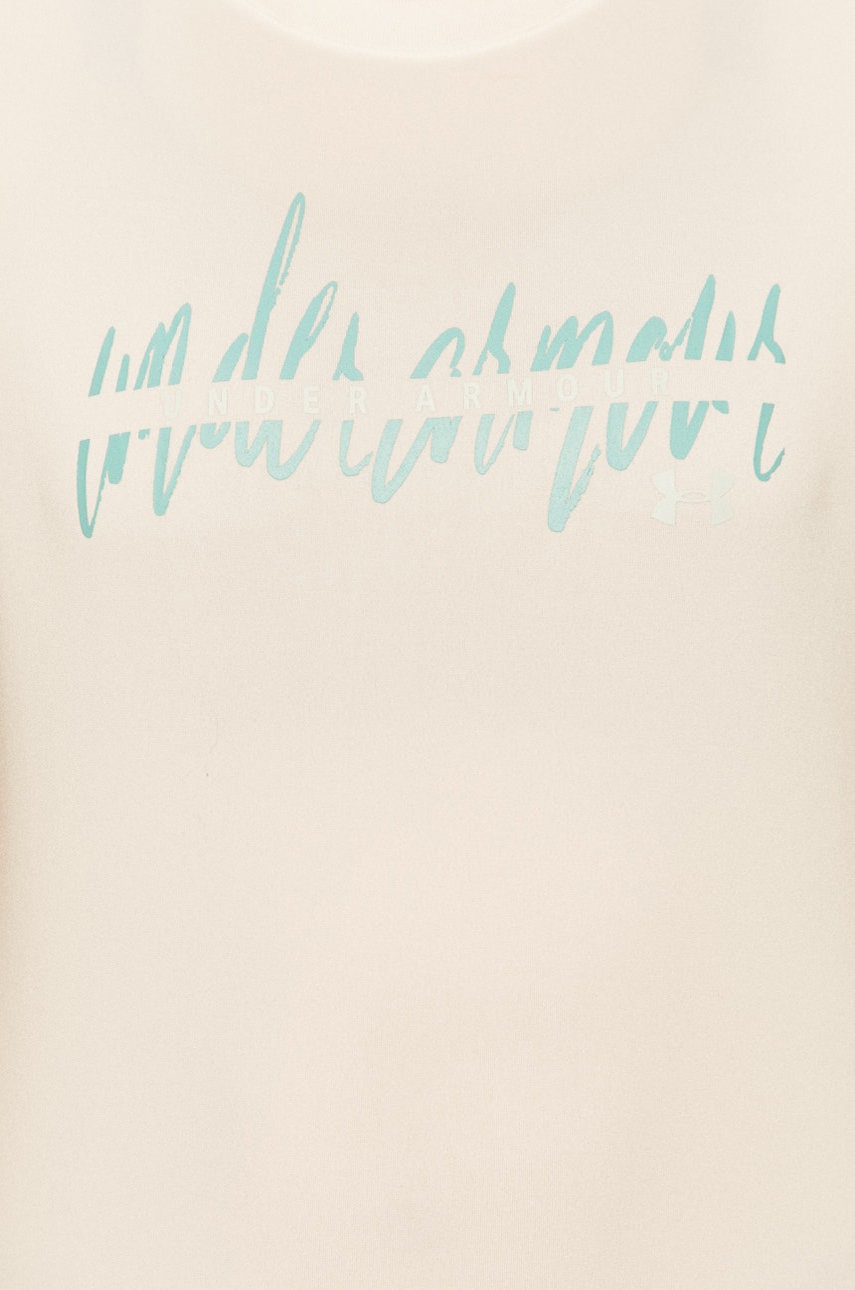 under armour
UNDER ARMOUR